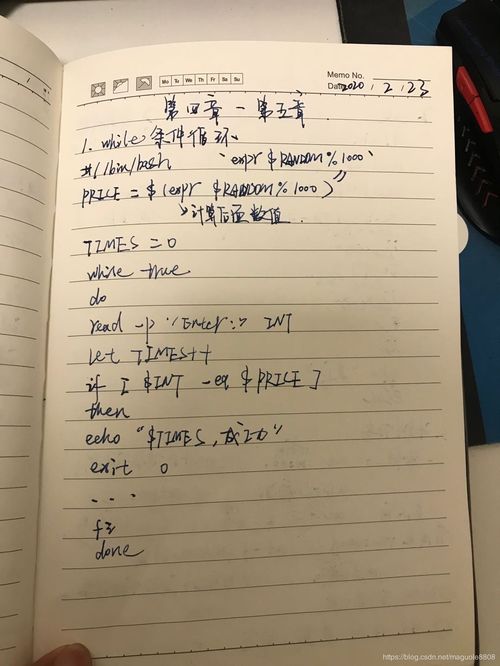 Mo Tu We Th Fr Sa Su
Memo No.
Date 2020 / 2 / 23
第四章 - 第五章
1. while 条件循环.
#!/bin/bash `expr $RANDOM%1000`
PRICE = $(expr $RANDOM%1000)
→计算后面数值.
TIMES = 0
while true
do
read -p "Enter:" INT
let TIMES++
if [ $INT -eq $PRICE ]
then
echo "$TIMES, 成功"
exit 0
...
fi
done
https://blog.csdn.net/maguole8808